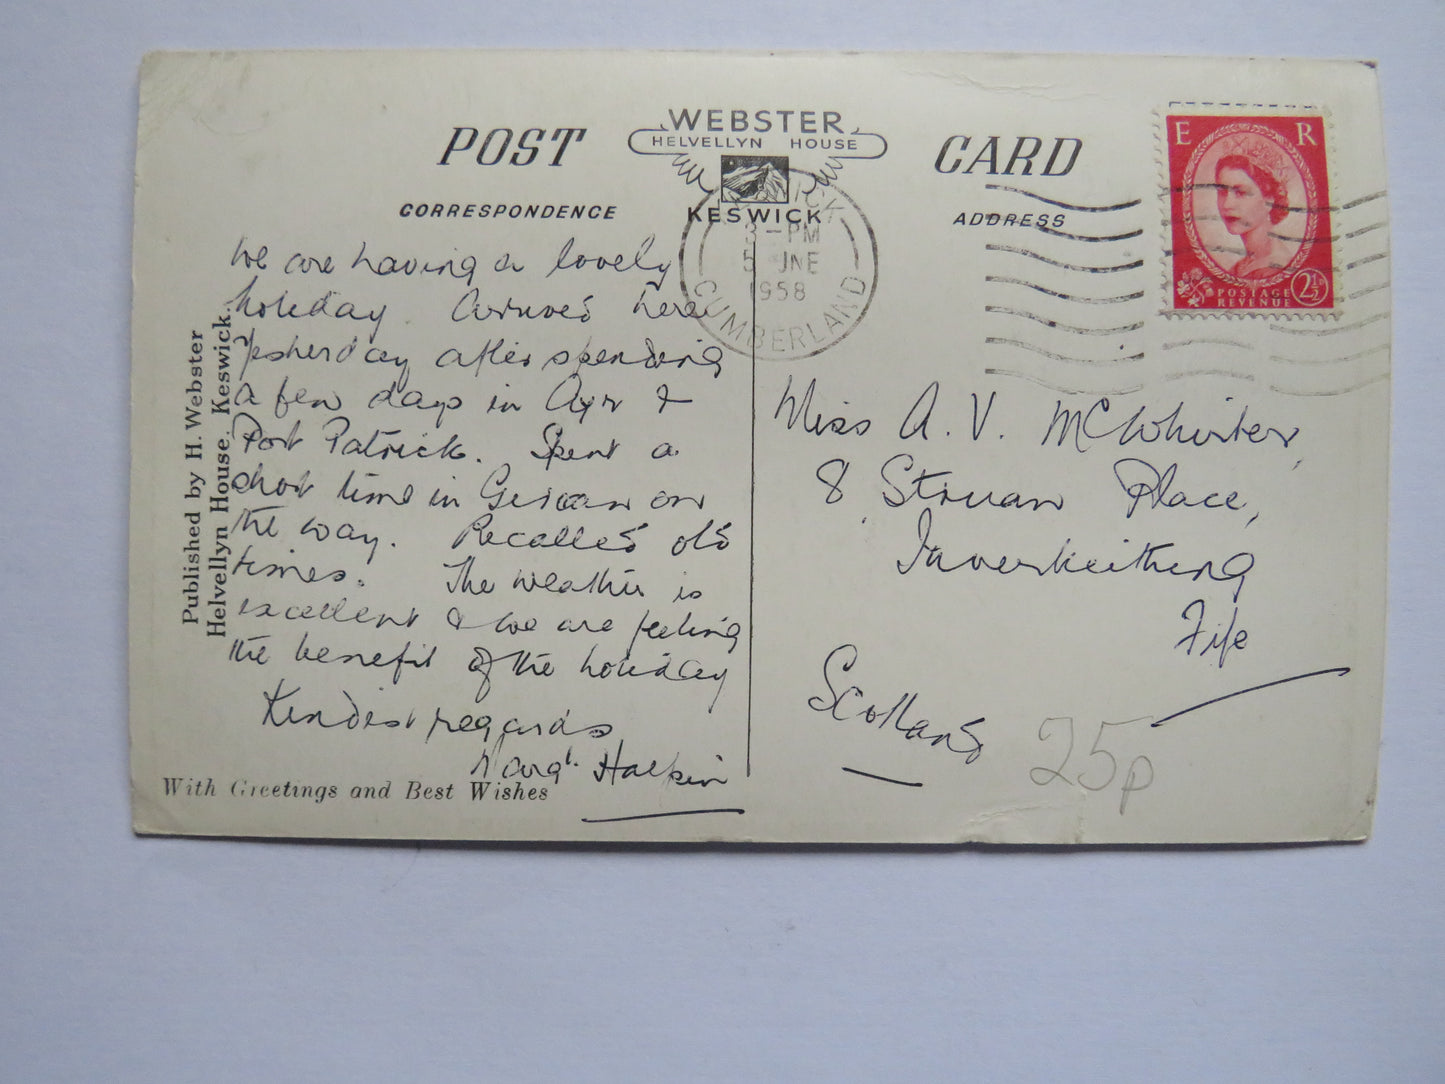 POST CARD
WEBSTER
HELVELLYN HOUSE
KESWICK
CORRESPONDENCE
ADDRESS
E R
POSTAGE
REVENUE
2½D
KESWICK
3-PM
5 JNE
1958
CUMBERLAND
Published by H. Webster
Helvellyn House, Keswick.
We are having a lovely
holiday. Arrived here
yesterday after spending
a few days in Ayr &
Port Patrick. Spent a
short time in Girvan on
the way. Recalled old
times. The weather is
excellent & we are feeling
the benefit of the holiday
Kindest regards
Margt. Halpin
With Greetings and Best Wishes
Miss A. V. McWhirter,
8, Struan Place,
Inverkeithing
Fife
Scotland
25p